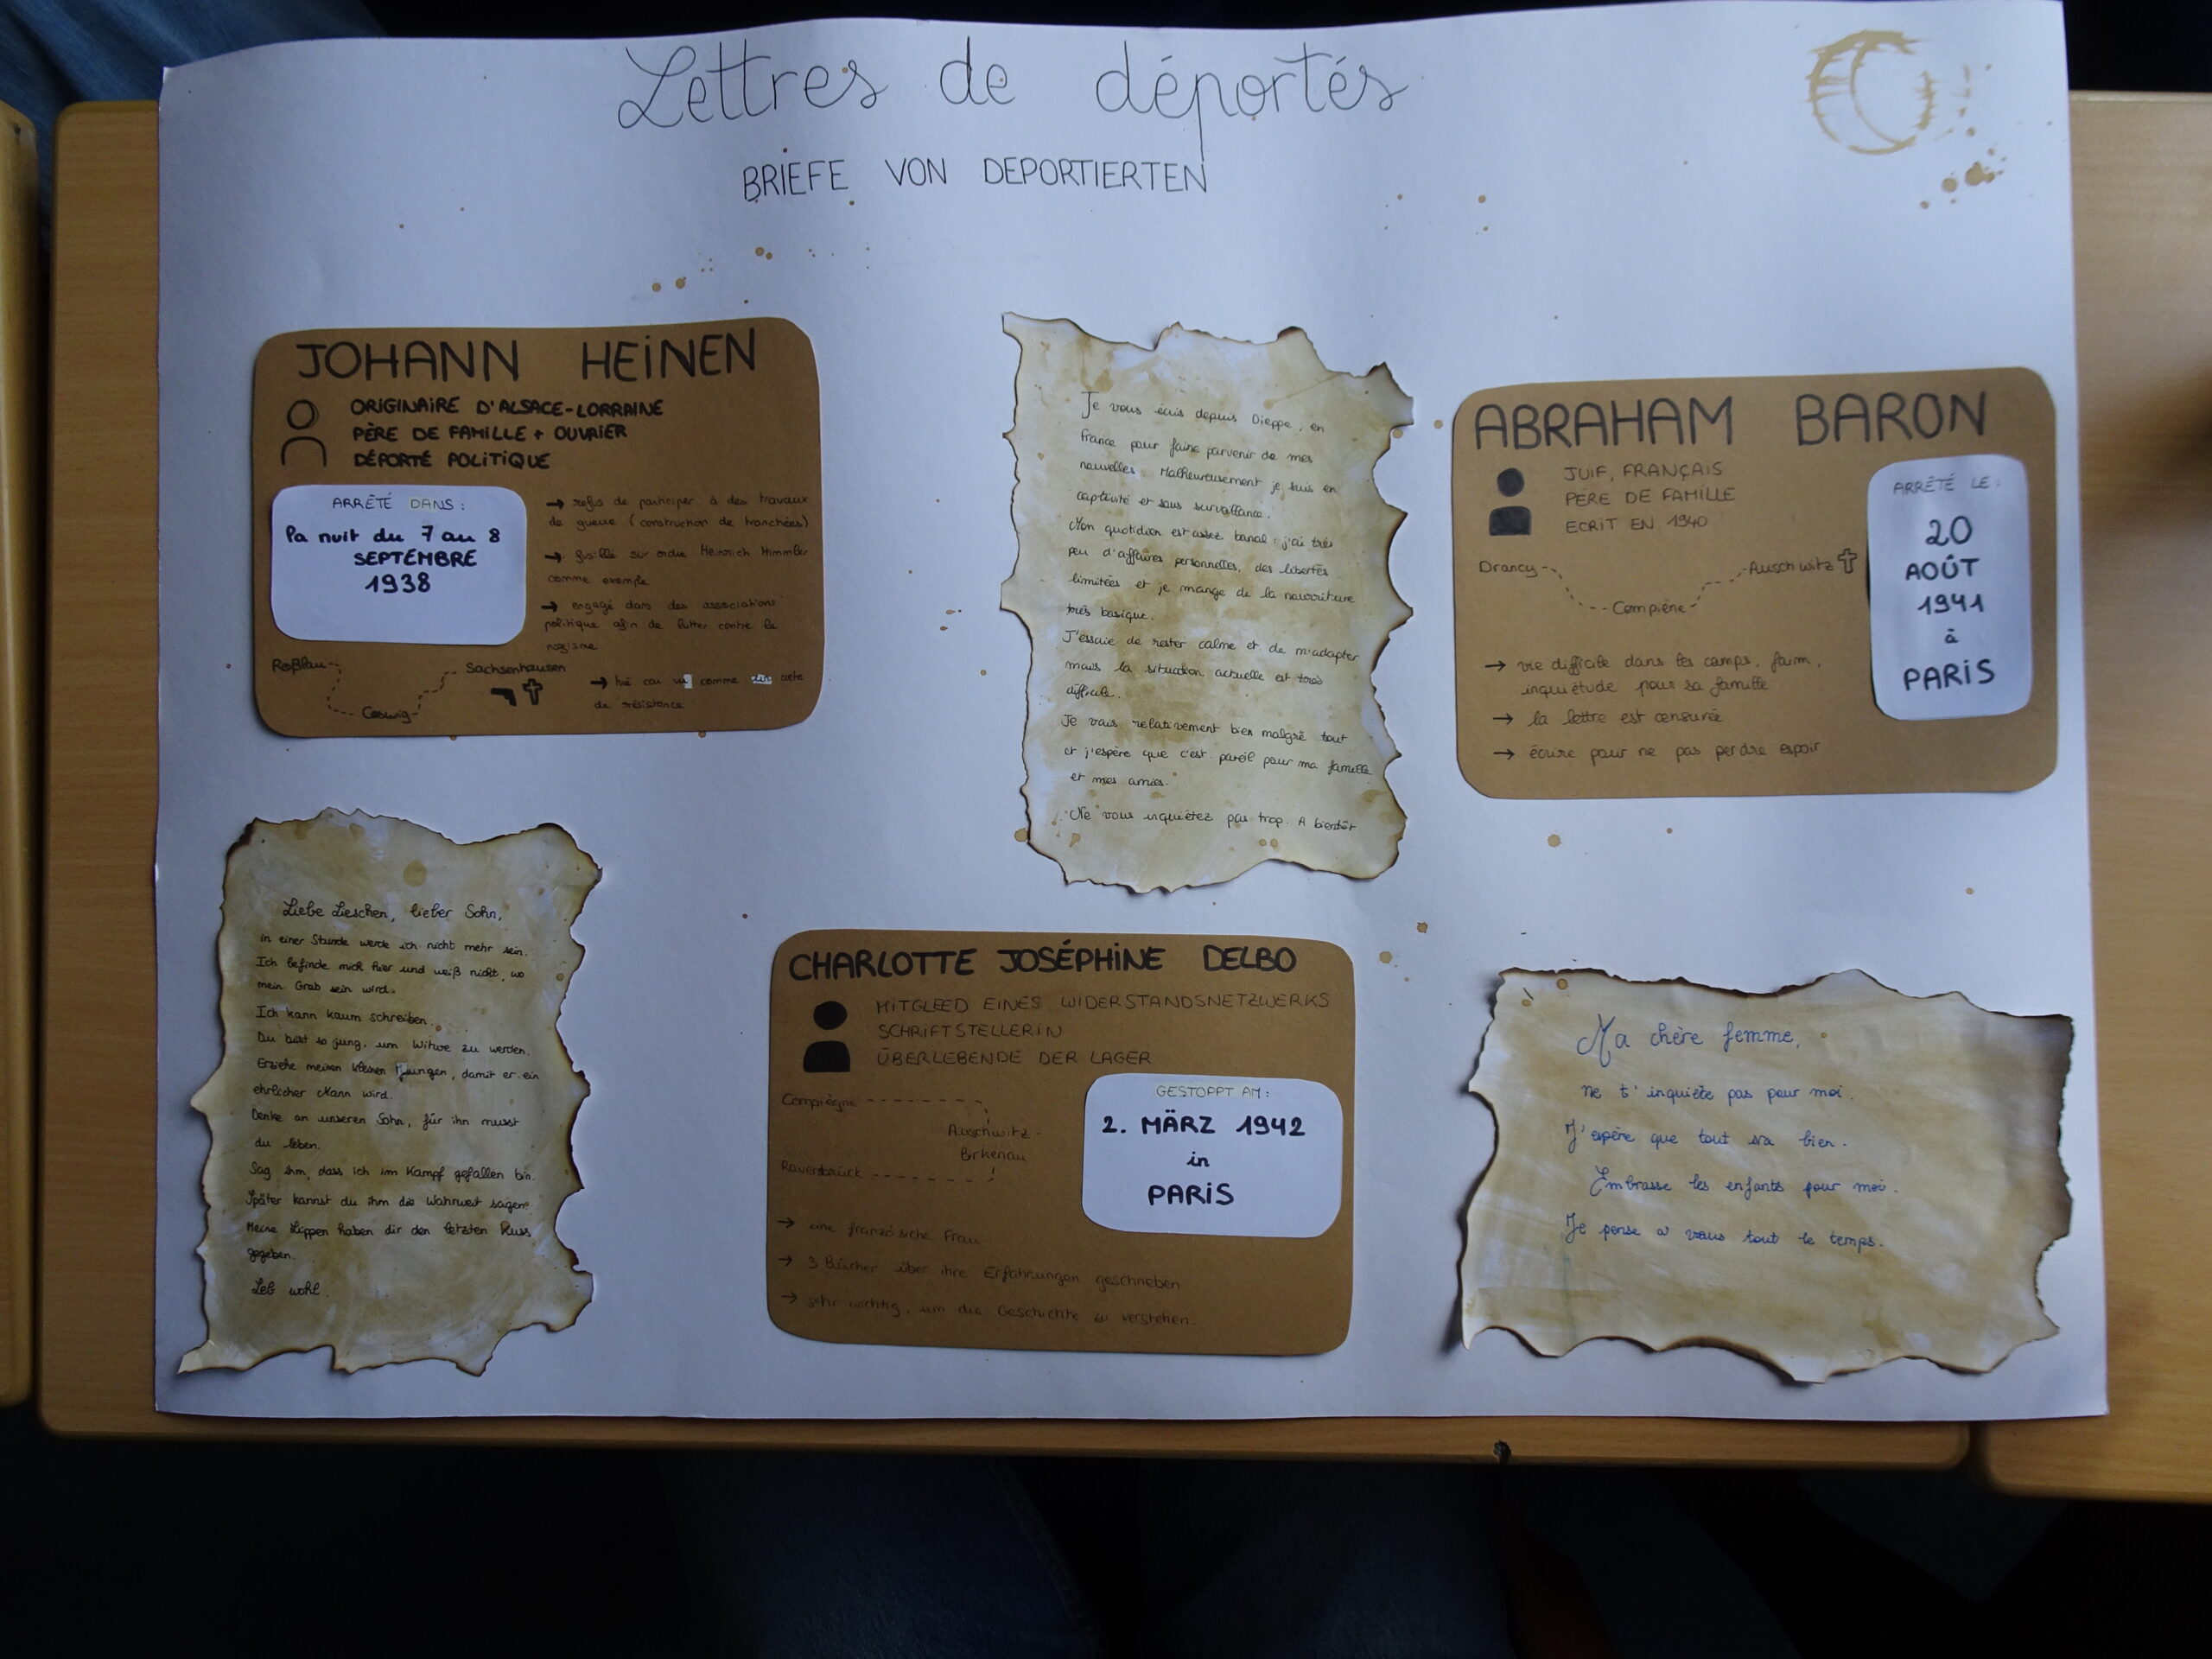 Lettres de déportés
BRIEFE VON DEPORTIERTEN
JOHANN HEINEN
ORIGINAIRE D'ALSACE-LORRAINE
PÈRE DE FAMILLE + OUVRIER
DÉPORTÉ POLITIQUE
ARRÊTÉ DANS :
la nuit du 7 au 8
SEPTEMBRE
1938
→ refus de participer à des travaux
de guerre (construction de tranchées)
→ fusillé sur ordre Heinrich Himmler
comme exemple
→ engagé dans des associations
politique afin de lutter contre le
nazisme
→ tué car vu comme acte
de résistance
Roßlau
Coswig
Sachsenhausen
Je vous écris depuis Dieppe, en
France pour faire parvenir de mes
nouvelles. Malheureusement je suis en
captivité et sous surveillance.
Mon quotidien est assez banal : j'ai très
peu d'affaires personnelles, des libertés
limitées et je mange de la nourriture
très basique.
J'essaie de rester calme et de m'adapter
mais la situation actuelle est très
difficile.
Je vais relativement bien malgré tout
et j'espère que c'est pareil pour ma famille
et mes amies.
Ne vous inquiétez pas trop. A bientôt
ABRAHAM BARON
JUIF, FRANÇAIS
PERE DE FAMILLE
ECRIT EN 1940
ARRÊTÉ LE :
20
AOÛT
1941
à
PARIS
Drancy
Compiène
Auschwitz
→ vie difficile dans les camps, faim,
inquiétude pour sa famille
→ la lettre est censurée
→ écrire pour ne pas perdre espoir
Liebe Lieschen, lieber Sohn,
in einer Stunde werde ich nicht mehr sein.
Ich befinde mich hier und weiß nicht, wo
mein Grab sein wird.
Ich kann kaum schreiben.
Du bist so jung, um Witwe zu werden.
Erziehe meinen kleinen Jungen, damit er ein
ehrlicher Mann wird.
Denke an unseren Sohn, für ihn musst
du leben.
Sag ihm, dass ich im Kampf gefallen bin.
Später kannst du ihm die Wahrheit sagen.
Meine Lippen haben dir den letzten Kuss
gegeben.
Leb wohl.
CHARLOTTE JOSÉPHINE DELBO
MITGLEED EINES WIDERSTANDSNETZWERKS
SCHRIFTSTELLERIN
ÜBERLEBENDE DER LAGER
Compiègne
Auschwitz-
Birkenau
Ravensbrück
GESTOPPT AM :
2. MÄRZ 1942
in
PARIS
→ eine französiche Frau
→ 3 Bücher über ihre Erfahrungen geschrieben
→ sehr wichtig, um die Geschichte zu verstehen.
Ma chère femme,
ne t'inquiète pas pour moi.
J'espère que tout va bien.
Embrasse les enfants pour moi.
Je pense a vous tout le temps.